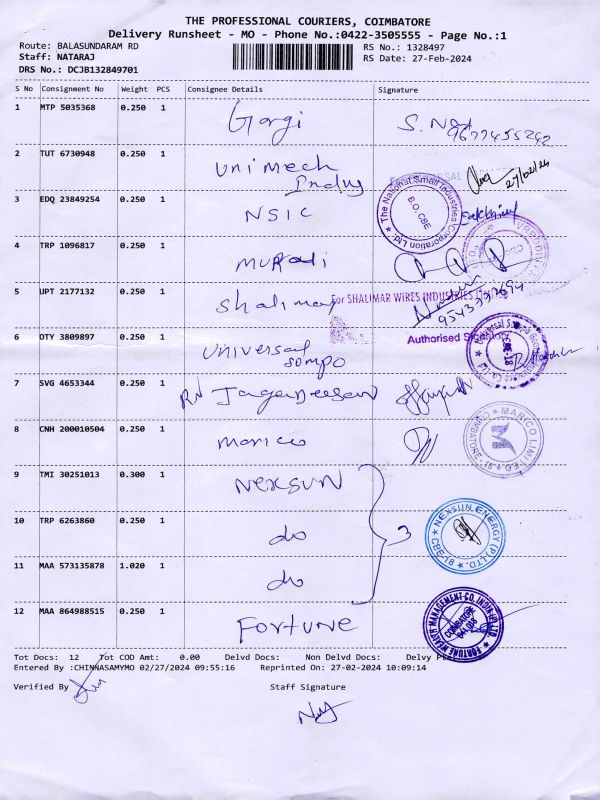 THE PROFESSIONAL COURIERS, COIMBATORE
Delivery Runsheet - MO - Phone No.:0422-3505555 - Page No.:1
Route: BALASUNDARAM RD
RS No.: 1328497
Staff: NATARAJ
RS Date: 27-Feb-2024
DRS No.: DCJB132849701
S No Consignment No Weight PCS Consignee Details Signature
1 MTP 5035368 0.250 1 Gargi
2 TUT 6730948 0.250 1 Unimech
27/02/24
3 EDQ 23849254 0.250 1 NSIC
The National Small Industries Corporation Ltd.
B.O. CBE
4 TRP 1096817 0.250 1 murali
5 UPT 2177132 0.250 1 Shalimar
For SHALIMAR WIRES INDUSTRIES
Authorised Signatory
6 DTY 3809897 0.250 1 Universal
Sompo
7 SVG 4653344 0.250 1
8 CNH 200010504 0.250 1 marico
MARICO LIMITED
COIMBATORE-18
9 TMI 30251013 0.300 1 Nexsun
10 TRP 6263860 0.250 1 do
3
NEXSUN ENERGY (P) LTD.
CBE-18
11 MAA 573135878 1.020 1 do
12 MAA 864988515 0.250 1 Fortune
FORTUNE WEALTH MANAGEMENT CO. INDIA (P) LTD
COIMBATORE
641 018
Tot Docs: 12 Tot COD Amt: 0.00 Delvd Docs: Non Delvd Docs: Delvy
Entered By :CHINNASAMYMO 02/27/2024 09:55:16 Reprinted On: 27-02-2024 10:09:14
Verified By
Staff Signature